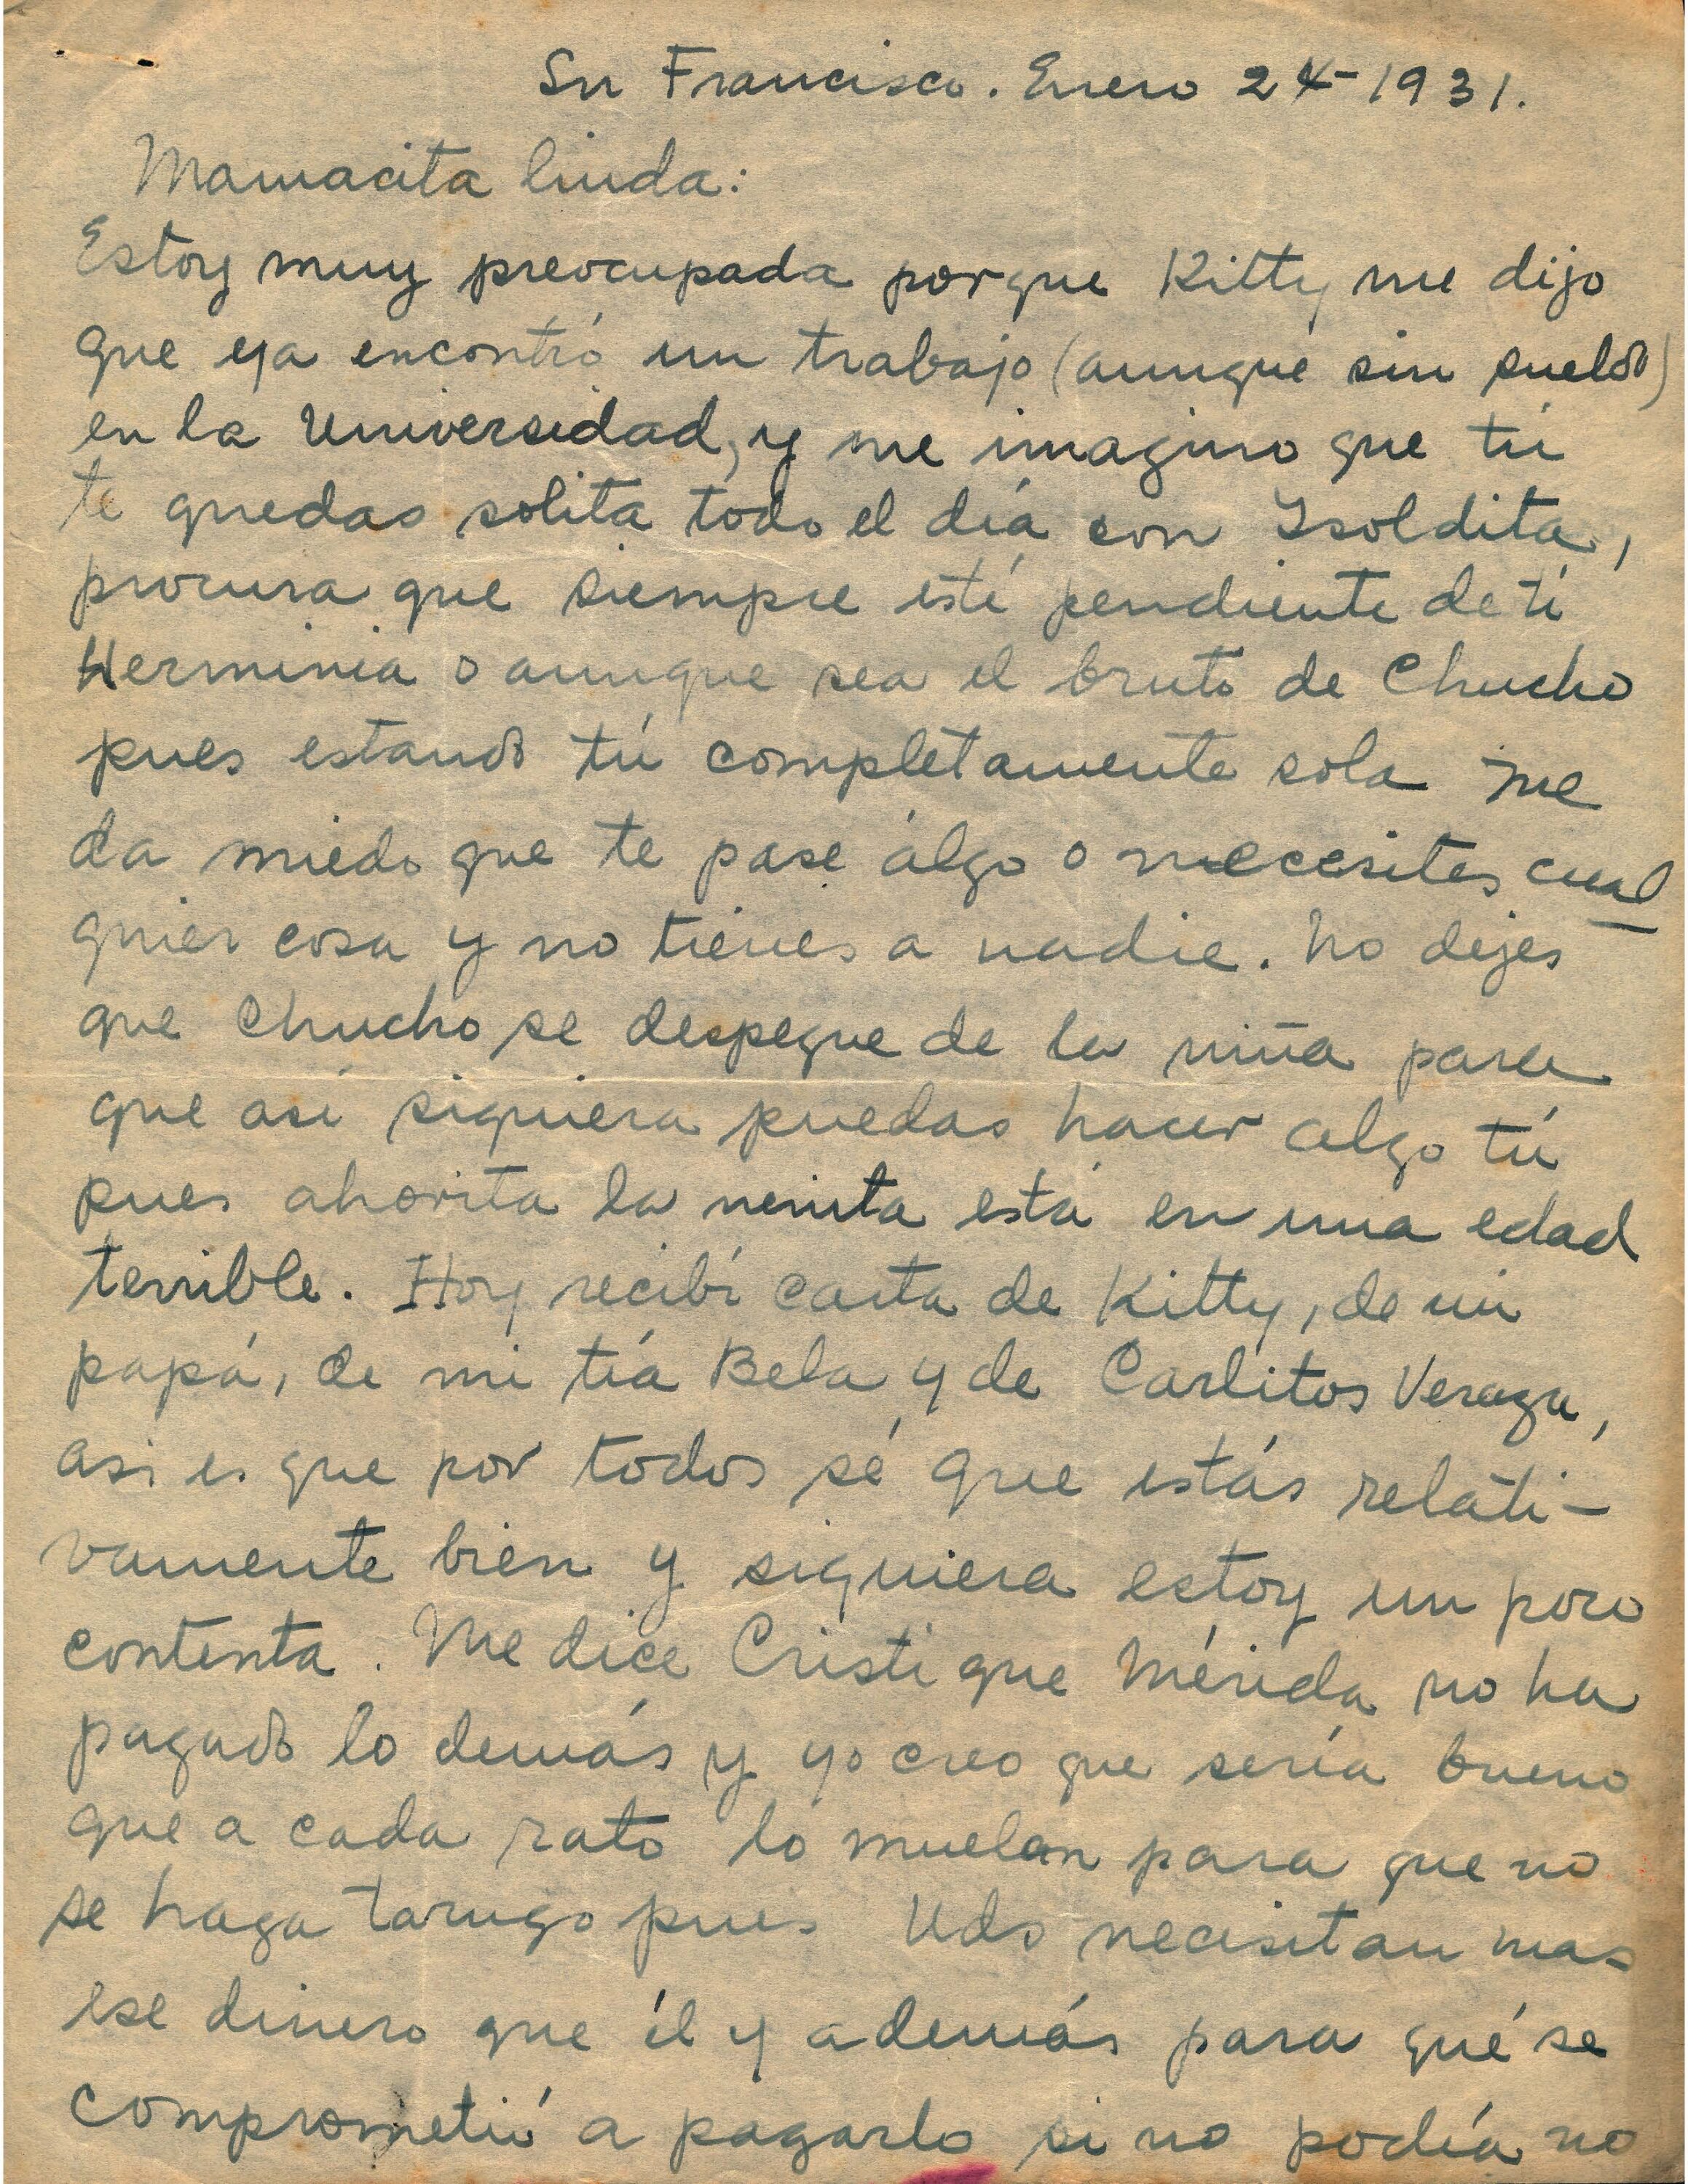 Sn Francisco. Enero 24-1931.
Mamacita linda:
Estoy muy preocupada porque Kitty me dijo
que ya encontró un trabajo (aunque sin sueldo)
en la Universidad, y me imagino que tú
te quedas solita todo el día con Isoldita,
procura que siempre esté pendiente de tí
Herminia o aunque sea el bruto de Chucho
pues estando tú completamente sola me
da miedo que te pase álgo o necesites cual
quier cosa y no tienes a nadie. No dejes
que Chucho se despegue de la niña para
que así siquiera puedas hacer algo tú
pues ahorita la nenita está en una edad
terrible. Hoy recibí carta de Kitty, de mi
papá, de mi tía Bela y de Carlitos Veraza,
asi es que por todos sé que estás relati-
vamente bien y siquiera estoy un poco
contenta. Me dice Cristi que Mérida no ha
pagado lo demás y yo creo que sería bueno
que a cada rato lo muelan para que no
se haga tarugo pues Uds necesitan mas
ese dinero que él y además para qué se
comprometió a pagarlo si no podía no